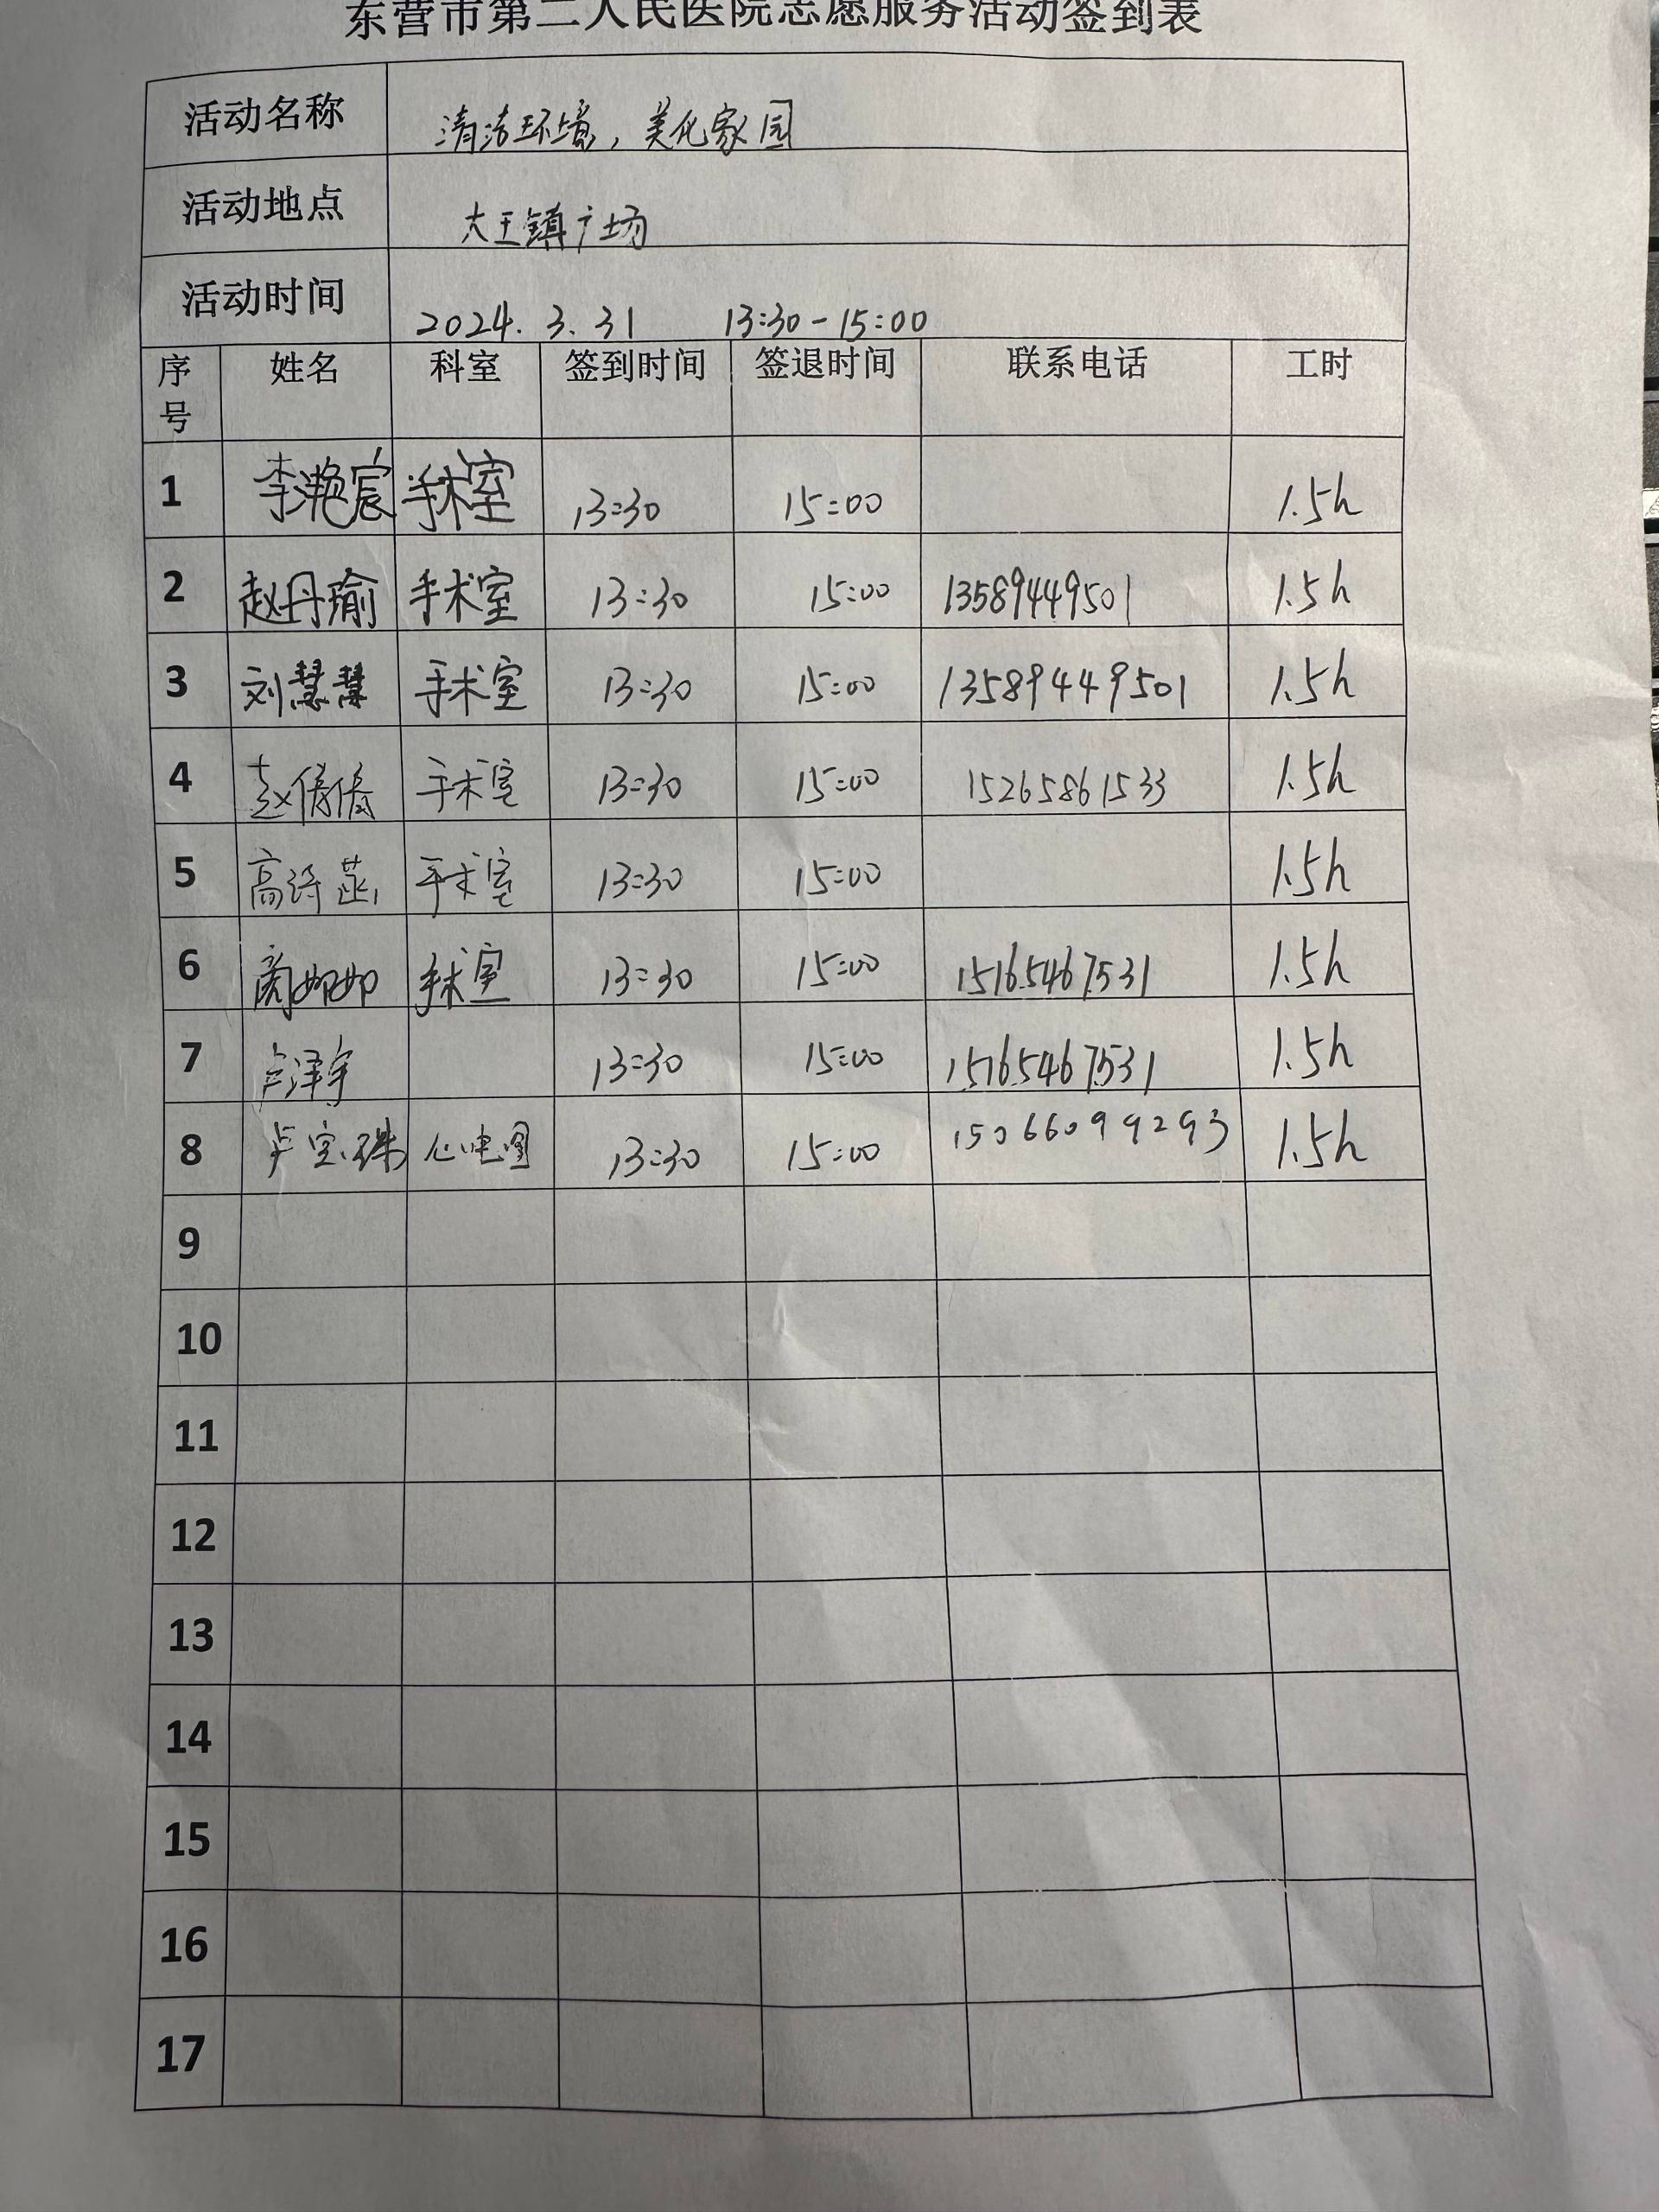 东营市第二人民医院志愿服务活动签到表
活动名称 清洁环境，美化家园
活动地点 大王镇广场
活动时间 2024.3.31 13:30-15:00
序号 姓名 科室 签到时间 签退时间 联系电话 工时
1 李滟宸 手术室 13:30 15:00 1.5h
2 赵丹瑜 手术室 13:30 15:00 13589449501 1.5h
3 刘慧慧 手术室 13:30 15:00 13589449501 1.5h
4 赵倩倩 手术室 13:30 15:00 15265861533 1.5h
5 高诗菡 手术室 13:30 15:00 1.5h
6 茹茹 手术室 13:30 15:00 15165467531 1.5h
7 卢泽宇 13:30 15:00 15165467531 1.5h
8 卢宝珠 心电图 13:30 15:00 15066099293 1.5h
9
10
11
12
13
14
15
16
17